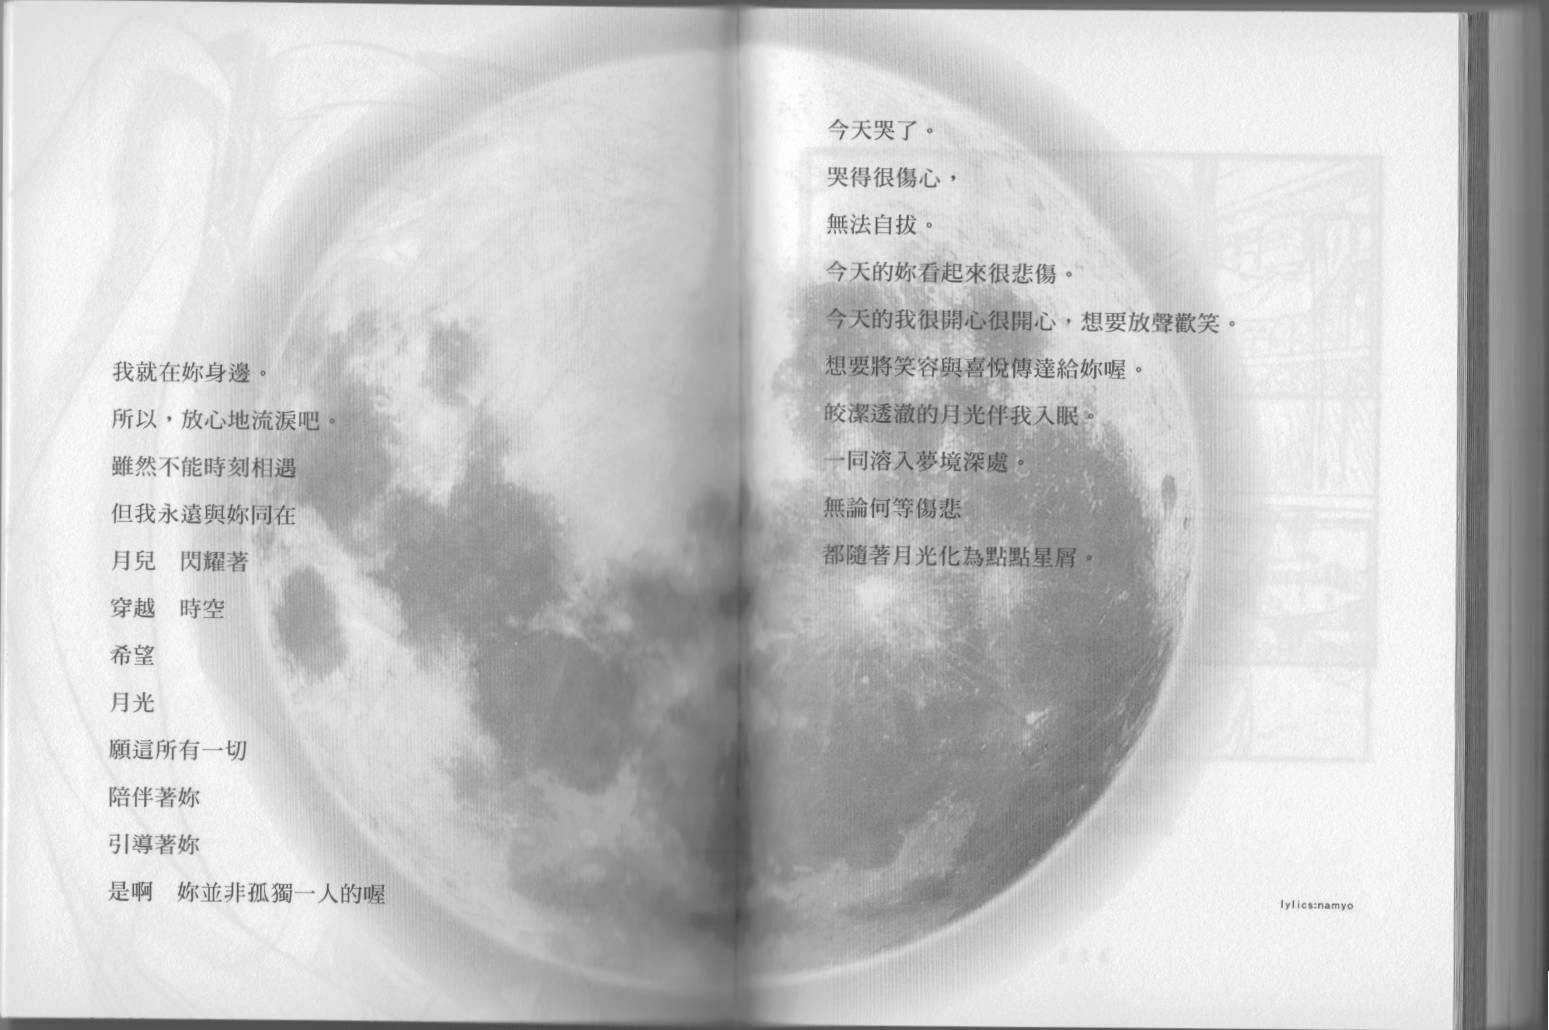 今天哭了。
哭得很傷心，
無法自拔。
今天的妳看起來很悲傷。
今天的我很開心很開心，想要放聲歡笑。
想要將笑容與喜悅傳達給妳喔。
皎潔透澈的月光伴我入眠。
一同溶入夢境深處。
無論何等傷悲
都隨著月光化為點點星屑。
我就在妳身邊。
所以，放心地流淚吧。
雖然不能時刻相遇
但我永遠與妳同在
月兒　閃耀著
穿越　時空
希望
月光
願這所有一切
陪伴著妳
引導著妳
是啊　妳並非孤獨一人的喔
lylics:namyo